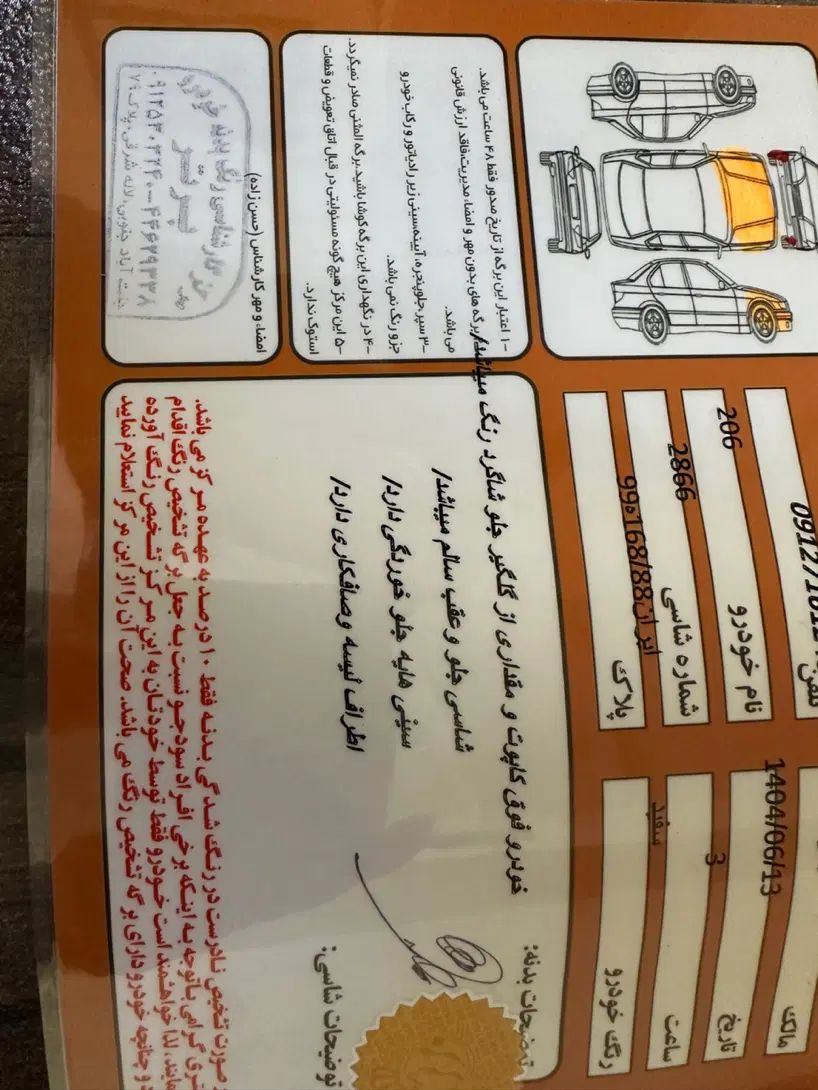 مالک
تلفن
تاریخ
1404/06/13
نام خودرو
206
ساعت
3
شماره شاسی
2866
رنگ خودرو
سفید
پلاک
ایران88/168ه99
۱- اعتبار این برگه از تاریخ صدور فقط ۴۸ ساعت می باشد.
برگه های بدون مهر و امضاء مدیریت،فاقد ارزش قانونی
می باشد.
۳- سپر،جلوپنجره، آیینه،سینی زیر رادیاتور و رکاب خودرو
جزو رنگ نمی باشد.
۴- در نگهداری این برگه کوشا باشید،برگه المثنی صادر نمیگردد.
۵- این مرکز هیچ گونه مسئولیتی در قبال اتاق تعویض و قطعات
استوک ندارد.
توضیحات بدنه:
خودرو فوق کاپوت و مقداری از گلگیر جلو شاگرد رنگ میباشد/
شاسی جلو و عقب سالم میباشد/
سینی هایه جلو خوردگی دارد/
اطراف لیسه وصافکاری دارد/
توضیحات شاسی:
امضاء و مهر کارشناس (حسن زاده)
کارشناسی رنگ بدنه خودرو
برتر
۴۴۶۲۹۳۳۸
جنت آباد جنوبی، لاله شرقی، پلاک ۷۹
صورت تشخیص نادرست در رنگ شدگی بدنه فقط ۱۰ درصد به عهده مرکز می باشد.
گرامی باتوجه به اینکه برخی افراد سودجو نسبت به جعل برگه تشخیص رنگ اقدام
لذا خواهشمند است خودرو فقط توسط خودتان به این مرکز تشخیص رنگ آورده
و چنانچه خودرو دارای برگه تشخیص رنگ می باشد، صحت آن را از این مرکز استعلام نمایید